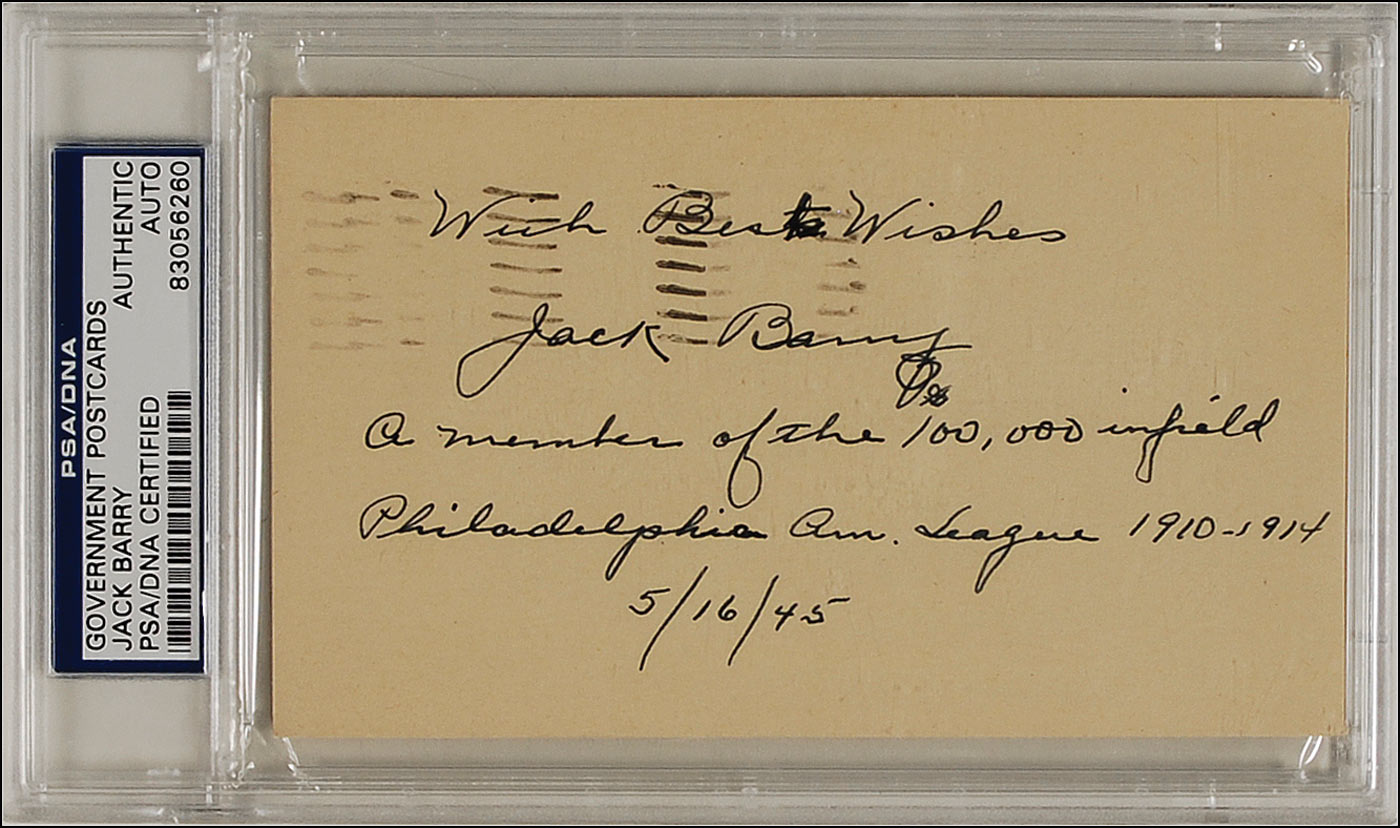 PSA/DNA
GOVERNMENT POSTCARDS
JACK BARRY AUTHENTIC
PSA/DNA CERTIFIED AUTO
83056260
With Best Wishes
Jack Barry
A member of the 100,000 infield
Philadelphia Am. League 1910-1914
5/16/45